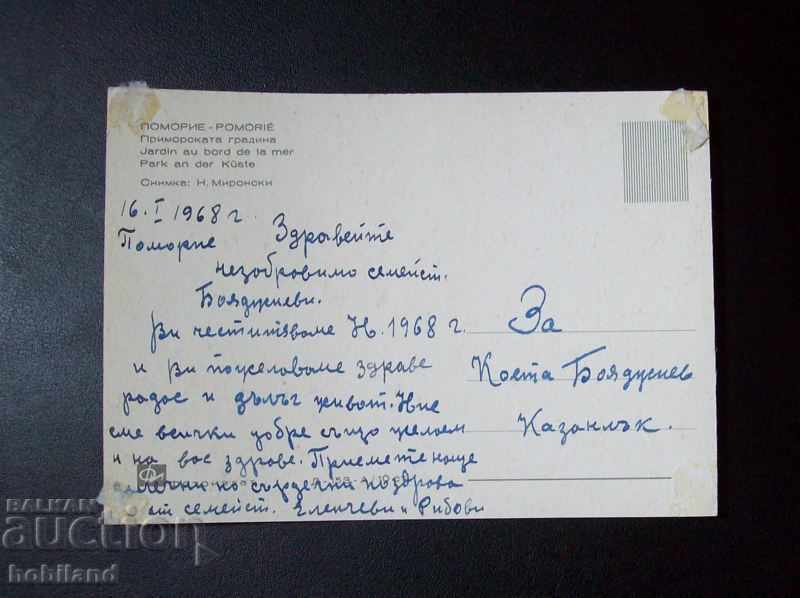 ПОМОРИЕ - POMORIÉ
Приморската градина
Jardin au bord de la mer
Park an der Küste
Снимка: Н. Миронски
16. I 1968 г.
Поморие Здравейте
незобровимо семейст.
Бояджиеви.
Ви честитяваме Н. 1968 г.
и Ви пожелаваме здраве
радос и дълъг живот. Ние
сме всички добре също желаем
и на вас здраве. Приемете наще
далечни но сърдечни поздрава
от семейст. Еленчеви и Рибови
За
Коста Бояджиев
Казанлък.
BALKAN
auction
hobiland